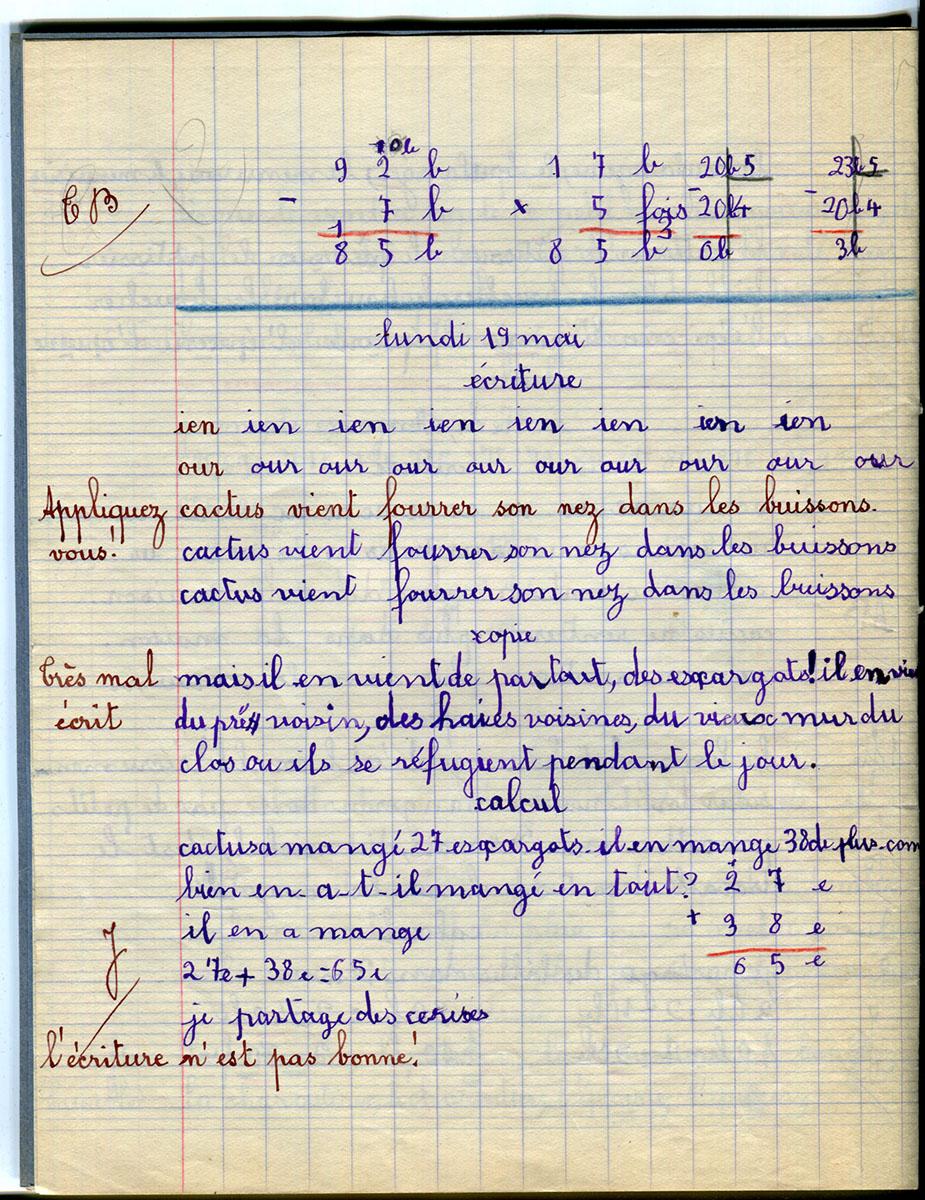 10b
9 2 b 1 7 b 20b 5 23b 5
T B - 7 b x 5 fois - 20b 4 - 20b 4
1 3
8 5 b 8 5 b 0b 3b
lundi 19 mai
écriture
ien ien ien ien ien ien ien ien
our our our our our our our our our our
Appliquez cactus vient fourrer son nez dans les buissons.
vous! cactus vient fourrer son nez dans les buissons
cactus vient fourrer son nez dans les buissons
copie
Très mal mais il en vient de partout, des escargots! il en
écrit du prés voisin, des haies voisines, du vieux mur du
clos ou ils se réfugient pendant le jour.
calcul
cactus a mangé 27 escargots. il en mange 38 de plus. com
bien en-a-t-il mangé en tout? 2 7 e
il en a mange + 3 8 e
J 27e + 38e = 65e 6 5 e
je partage des cerises
l'écriture n'est pas bonne!